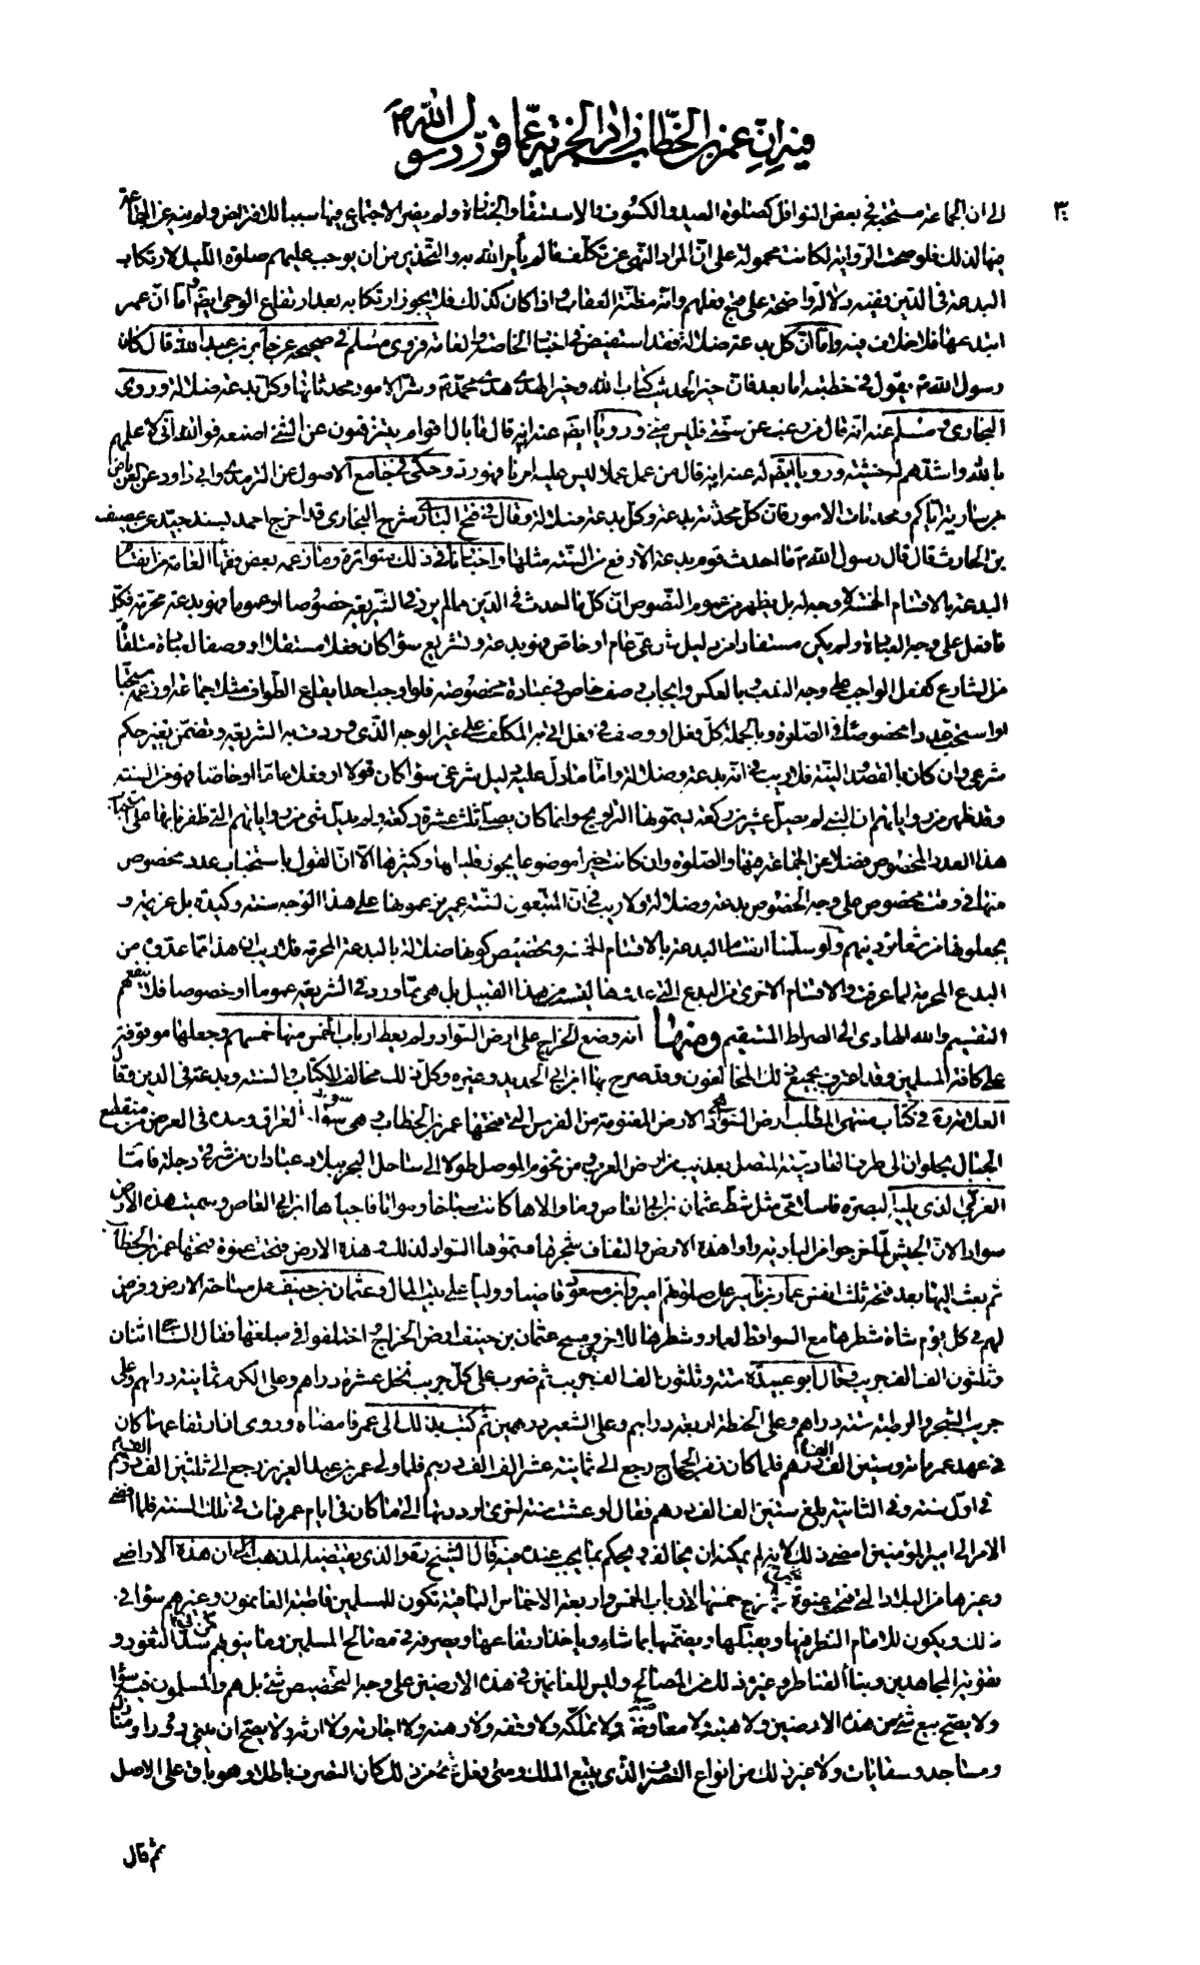 فيه انّ عمر بن الخطّاب زاد الجزية عمّا قرّر رسول الله ص
الى ان الجماعة مستحبة في بعض النوافل كصلوة العيد والكسوف والاستسقاء والجنازة ولم يصر الاجتماع فيها سببا للافتراض ولم ينه عن الجماعة
فيها لذلك فلو صحت الرواية لكانت محمولة على انّ المراد النهي عن تكلّف ما لم يأمر الله به والتحذير من ان يوجب عليهم صلوة الليل لارتكاب
البدعة في الدين ففيه دلالة واضحة على قبح فعلهم وانه مظنّة العقاب واذا كان كذلك فلا يجوز ارتكابه بعد ارتفاع الوحي ايضا وأما انّ عمر
ابتدعها فلا خلاف فيه وأما انّ كل بدعة ضلالة فقد استفيض في اخبار الخاصة والعامة فروى مسلم في صحيحه عن جابر بن عبد الله قال كان
رسول الله ص يقول في خطبته اما بعد فان خير الحديث كتاب الله وخير الهدى هدى محمد ص وشر الامور محدثاتها وكل بدعة ضلالة وروى
البخاري ومسلم عنه انه قال من رغب عن سنّتي فليس مني ورويا ايضا عنه انه قال ما بال اقوام يتنزهون عن الشئ اصنعه فوالله اني لاعلمهم
بالله واشدهم له خشية ورويا ايضا عنه انه قال من عمل عملا ليس عليه امرنا فهو رد وحكى في جامع الاصول عن الترمذي وابي داود عن العرباض
بن سارية اياكم ومحدثات الامور فان كل محدثة بدعة وكل بدعة ضلالة وقال في فتح الباري شرح البخاري قد اخرج احمد بسند جيد عن غضيف
بن الحارث قال قال رسول الله ص ما احدث قوم بدعة الا رفع من السنّة مثلها واخبارنا في ذلك متواترة وما زعمه بعض فقهاء العامة من انقسام
البدعة بالاقسام الخمسة لا وجه له بل يظهر من عموم النصوص ان كل ما احدث في الدين مما لم يرد في الشريعة خصوصا او عموما فهو بدعة محرمة فكلّ
ما فعل على وجه العبادة ولم يكن مستفادا من دليل شرعي عام او خاص فهو بدعة وتشريع سواء كان فعلا مستقلا او وصفا لعبادة متلقاة
من الشارع كفعل الواجب على وجه الندب وبالعكس وايجاب وصف خاص في عبادة مخصوصة فلو اوجب احد ايقاع الطواف مثلا جماعة او زعمه مستحبا
او استحبّ عددا مخصوصا في الصلوة وبالجملة كل فعل او وصف في فعل اتى به المكلف على غير الوجه الذي وردت به الشريعة وتضمن تغيير حكم
شرعي وان كان بالقصد والنية فلا ريب في انه بدعة وضلالة واما ما دل عليه دليل شرعي سواء كان قولا او فعلا عاما او خاصا فهو من السنة
وقد ظهر من رواياتهم ان النبي لم يصل عشرين ركعة يسمونها التراويح وانما كان يصلي ثلث عشرة ركعة ولم يدل شئ من رواياتهم التي ظفرنا بها على استحباب
هذا العدد المخصوص فضلا عن الجماعة فيها والصلوة وان كانت خيرا موضوعا يجوز قليلها وكثيرها الا انّ القول باستحباب عدد مخصوص
منها في وقت مخصوص على وجه الخصوص بدعة وضلالة ولا ريب في ان المتبعون لسنة عمر يزعمونها على هذا الوجه سنة وكيدة بل عزيمة و
يجعلونها من شعائر دينهم ولو سلّمنا انقسام البدعة بالاقسام الخمسة وتخصيص كونها ضلالة بالبدعة المحرمة فلا ريب ان هذا مما عدّوه من
البدع المحرمة لما عرفت والاقسام الاخرى من البدع التي عدّوها ليست من هذا القبيل بل هي مما ورد في الشريعة عموما او خصوصا فلا ينفعهم
التقسيم والله الهادي الى الصراط المستقيم ومنها انه وضع الخراج على ارض السواد ولم يعط ارباب الخمس منها خمسهم وجعلها موقوفة
على كافة المسلمين وقد اعترف بجميع ذلك المخالفون وقد صرح بها ابن ابي الحديد وغيره وكل ذلك مخالف للكتاب والسنة وبدعة في الدين وقال
العلامة ره في كتاب منتهى المطلب ارض السواد هي الارض المغنومة من الفرس التي فتحها عمر بن الخطاب وهي سواد العراق وحده في العرض من منقطع
الجبال بحلوان الى طرف القادسية المتصل بعذيب من ارض العرب ومن تخوم الموصل طولا الى ساحل البحر ببلاد عبادان من شرقي دجلة فأما
الغربي الذي يليه البصرة فاسلامي مثل شط عثمان بن ابي العاص وما والاها كانت سباخا ومواتا فاحياها ابن ابي العاص وسميت هذه الارض
سوادا لان الجيش لما خرجوا من البادية رأوا هذه الارض والتفاف شجرها سموها السواد لذلك وهذه الارض فتحت عنوة فتحها عمر بن الخطاب
ثم بعث اليها بعد فتحه ثلث انفس عمار بن ياسر على صلوتهم اميرا وابن مسعود قاضيا وواليا على بيت المال وعثمان بن حنيف على مساحة الارض وفرض
لهم في كل يوم شاة شطرها مع السواقط لعمار وشطرها للاخرين ومسح عثمان بن حنيف ارض الخراج واختلفوا في مبلغها فقال الساجي اثنان
وثلثون الف الف جريب وقال ابو عبيدة ستة وثلثون الف الف جريب ثم ضرب على كل جريب نخل عشرة دراهم وعلى الكرم ثمانية دراهم وعلى
جريب الشجر والرطبة ستة دراهم وعلى الحنطة اربعة دراهم وعلى الشعير درهمين ثم كتب بذلك الى عمر فامضاه وروى ان ارتفاعها كان
في عهد عمر مائة وستين الف الف درهم فلما كان زمن الحجاج رجع الى ثمانية عشر الف الف درهم فلما ولى عمر بن عبد العزيز رجع الى ثلثين الف الف درهم
في اول سنة وفي الثانية بلغ ستين الف الف درهم فقال لو عشت سنة اخرى لرددتها الى ما كان في ايام عمر فمات في تلك السنة فلما افضى
الامر الى امير المؤمنين امضى ذلك لانه لم يمكنه ان يخالف ويحكم بما يجب عنده فيه قال الشيخ ره والذي يقتضيه المذهب ان هذه الاراضي
وغيرها من البلاد التي فتحت عنوة يخرج خمسها لارباب الخمس واربعة الاخماس الباقية تكون للمسلمين قاطبة الغانمون وغيرهم سواء في
ذلك ويكون للامام النظر فيها وتقبيلها وتضمينها بما شاء ويأخذ ارتفاعها ويصرفه في مصالح المسلمين وما ينوبهم من سد الثغور و
تقوية المجاهدين وبناء القناطر وغير ذلك من المصالح وليس للغانمين في هذه الارضين على وجه التخصيص شئ بل هم والمسلمون فيه سواء
ولا يصح بيع شئ من هذه الارضين ولا هبته ولا معاوضته ولا تملكه ولا وقفه ولا رهنه ولا اجارته ولا ارثه ولا يصح ان يبنى دورا ومنازل
ومساجد وسقايات ولا غير ذلك من انواع التصرف الذي يتبع الملك ومتى فعل شئ من ذلك كان التصرف باطلا وهو باق على الاصل
ثم قال